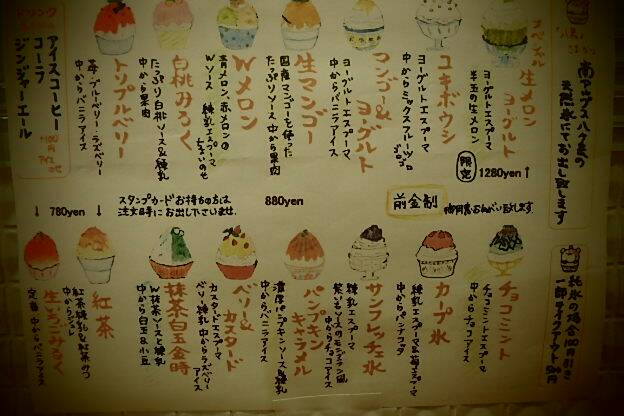 南アルプス八ヶ岳の
天然氷にてお出し致します
スペシャル
生メロン
ヨーグルト
ヨーグルトエスプーマ
半玉の生メロン
限定
1280yen
ユキボウシ
ヨーグルトエスプーマ
中からミックスフルーツ
ゴロゴロ
マンゴー&
ヨーグルト
ヨーグルトエスプーマ
中からバニラアイス
生マンゴー
国産マンゴーを使った
たっぷりソース 中から果肉
Wメロン
青メロン、赤メロンの
Wソース 練乳エスプーマ
白桃みるく
たっぷり白桃ソース&練乳
中から果肉
トリプルベリー
苺・ブルーベリー・ラズベリー
中からバニラアイス
ドリンク
アイスコーヒー
コーラ
ジンジャーエール
880yen
スタンプカードお持ちの方は
注文時にお出し下さいませ。
前金制
780yen
純氷の場合100円引き
一部テイクアウト500円
チョコミント
チョコミントエスプーマ
中からチョコアイス
カープ氷
練乳エスプーマ&苺エスプーマ
中からパンナコッタ
サンフレッチェ氷
練乳エスプーマ
紫いもソースのモンブラン風
中からチョコアイス
パンプキン
キャラメル
濃厚パンプキンソース&練乳
中からバニラアイス
ベリー&
カスタード
カスタードエスプーマ
ベリー&練乳 中からラズベリー
アイス
抹茶白玉金時
W抹茶ソースと練乳
中から白玉&小豆
紅茶
紅茶練乳&紅茶みつ
中からジュレ
生いちごみるく
定番 中からバニラアイス